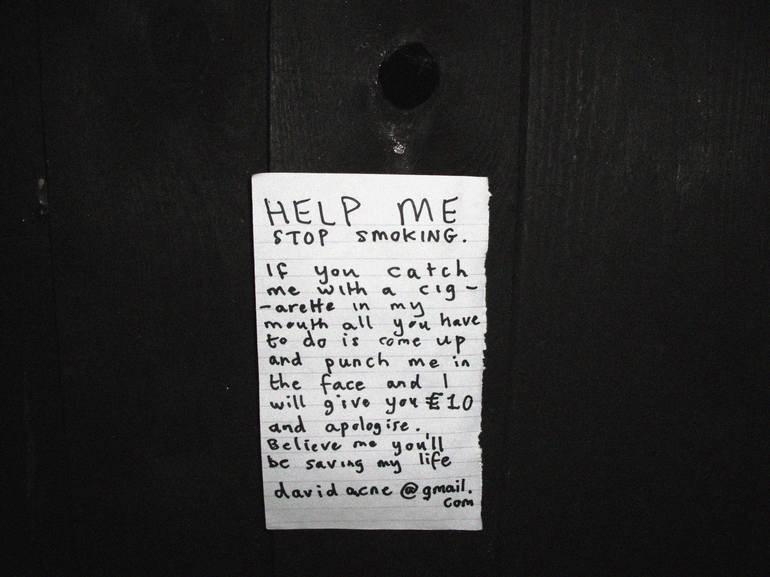 HELP ME
STOP SMOKING.
If you catch
me with a cig-
-arette in my
mouth all you have
to do is come up
and punch me in
the face and I
will give you €10
and apologise.
Believe me you'll
be saving my life
davidacne@gmail.
com